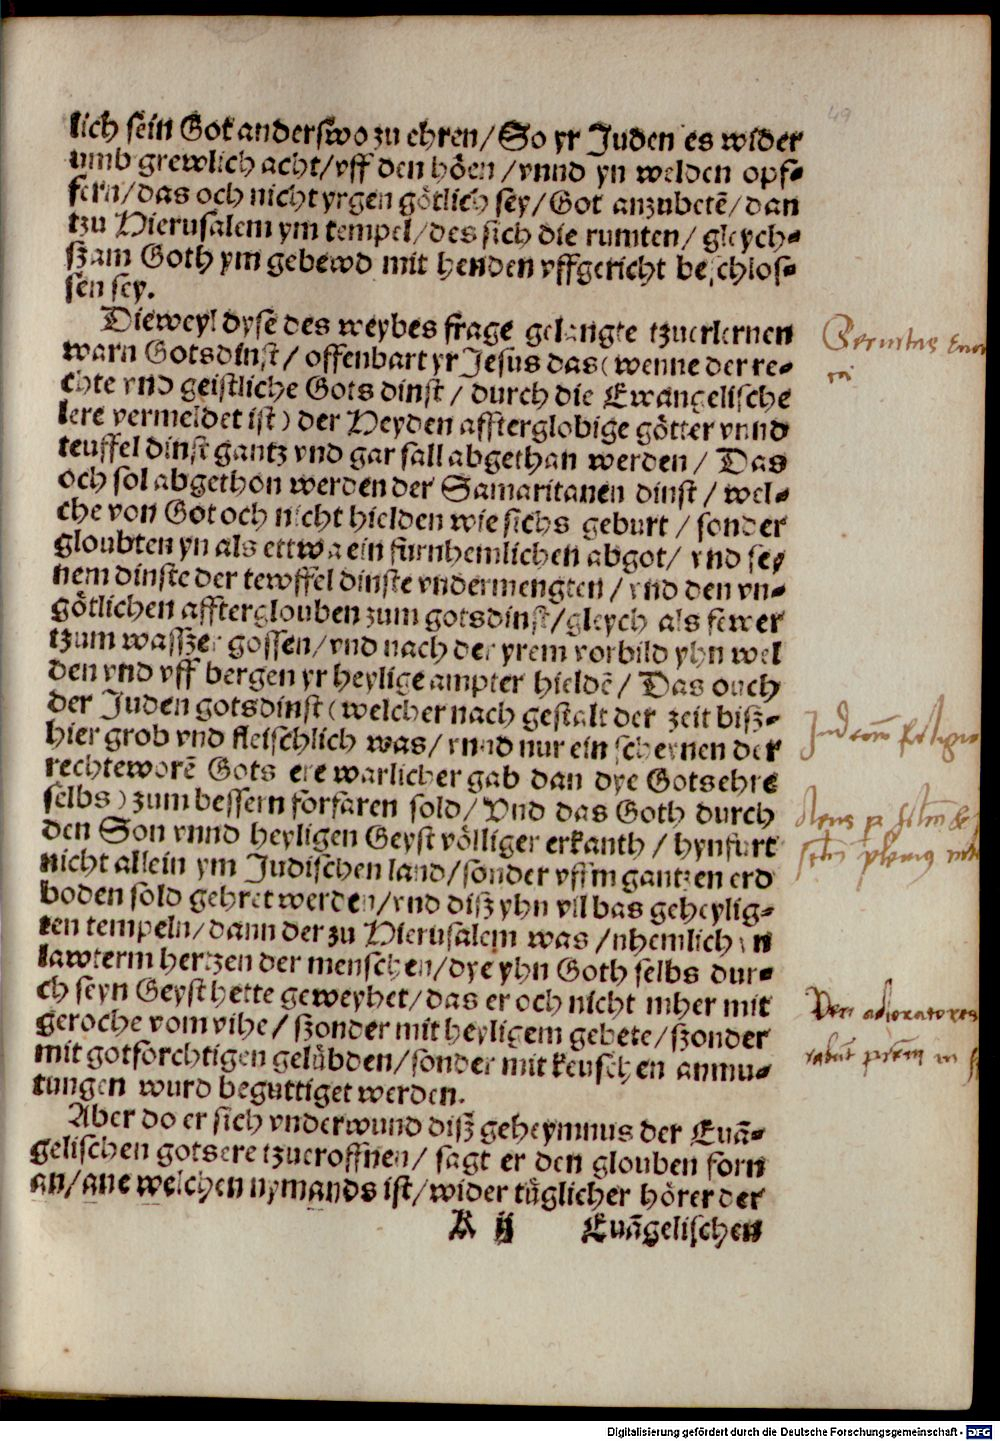 49
lich sein Got anderswo zu ehren/ So yr Juden es wider
umb grewlich acht/ vff den höen /vnnd yn welden opf⸗
fern/ das och nicht yrgen götlich sey/ Got anzubetē/ dan
tzu Hierusalem ym tempel/ des sich die rumten/ gleych⸗
ßam Goth ym gebewd mit henden vffgericht beschlos⸗
sen sey.
Dieweyl dysē des weybes frage gelangte tzuerlernen
warn Gotsdinst/ offenbart yr Jesus das( wenne der re⸗
chte vnd geistliche Gots dinst / durch die Ewangelische
lere vermeldet ist) der Heyden affterglobige götter vnnd
teuffel dinst gantz vnd gar sall abgethan werden/ Das
och sol abgethon werden der Samaritanen dinst / wel⸗
che von Got och nicht hielden wie sichs geburt / sonder
gloubten yn als ettwa ein furnhemlichen abgot/ vnd sey
nem dinste der tewffel dinste vndermengten / vnd den vn⸗
götlichen affterglouben zum gotsdinst/ gleych als fewer
tzum wasszer gossen/ vnd nach der yrem vorbild yhn wel
den vnd vff bergen yr heylige ampter hieldē/ Das ouch
der Juden gotsdinst ( welcher nach gestalt der zeit biß⸗
hier grob vnd fleischlich was/ vnnd nur ein scheynen der
rechteworē Gots ere warlicher gab dan dye Gotsehre
selbs) zum bessern forfaren sold/ Vnd das Goth durch
den Son vnnd heyligen Geyst völliger erkanth / hynfurt
nicht allein ym Judischen land/ sonder vffm gantzen erd
boden sold gehret werden/ vnd diß yhn vil bas geheylig⸗
ten tempeln/ dann der zu Hierusalem was /nhemlich yn
lawterm hertzen der menschen/ dye yhn Goth selbs dur⸗
ch seyn Geyst hette geweyhet/ das er och nicht mher mit
geroche vom vihe/ ßzonder mit heyligem gebete/ ßzonder
mit gotforchtigen gelübden/ sonder mit keuschen anmu⸗
tungen wurd beguttiget werden.
Aber do er sich vnderwund diß geheymnus der Euā⸗
gelischen gotsere tzueroffnen/ sagt er den glouben forn
an/ ane welchen nymands ist/ wider tüglicher hörer der
K ij Euāgelischen
Veri adoratores
Digitalisierung gefördert durch die Deutsche Forschungsgemeinschaft - DFG